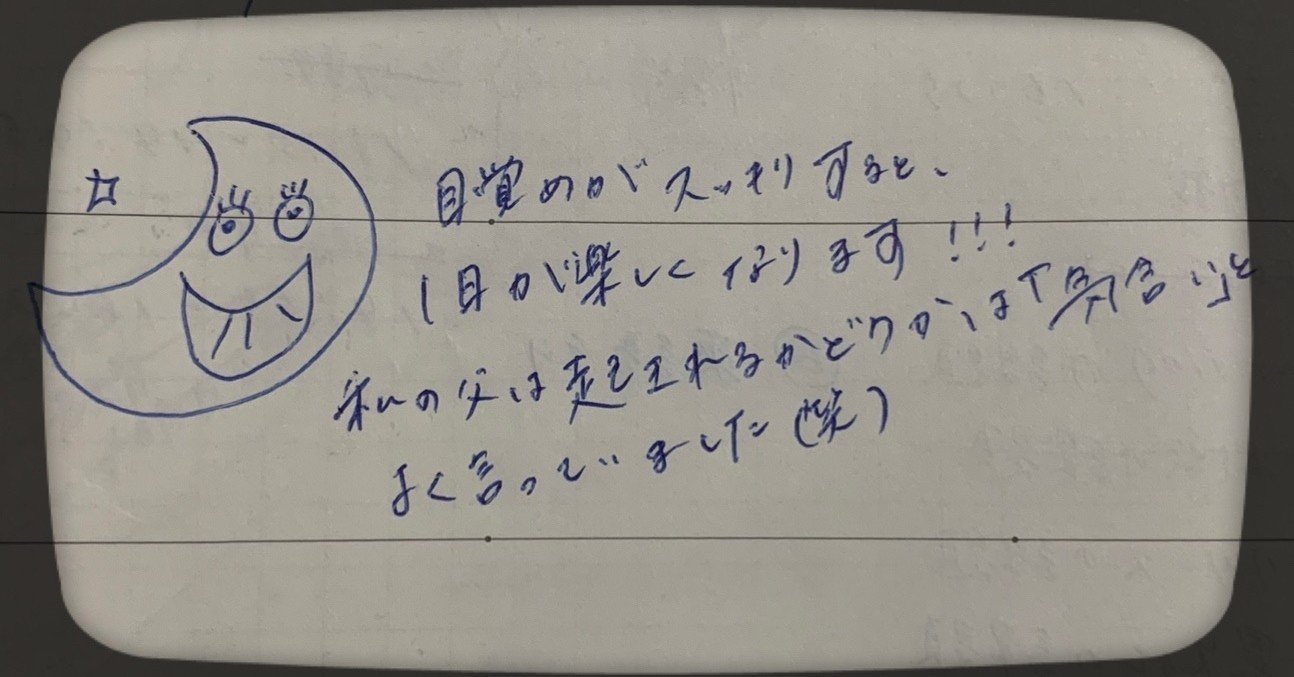 目覚めがスッキリすると、
1日が楽しくなります!!!
私の父は起きれるかどうかは「気合い」と
よく言っていました(笑)